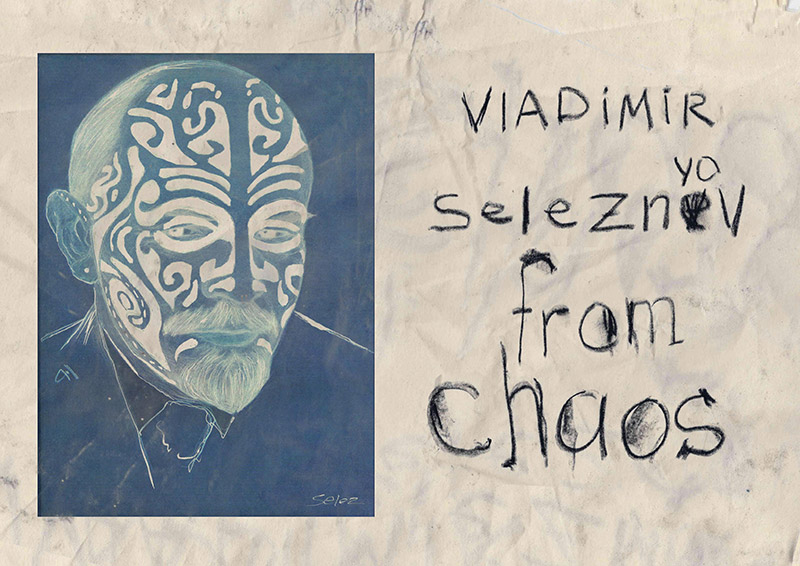 VlADiMiR
yo
SelezneV
from
chaos
Selez